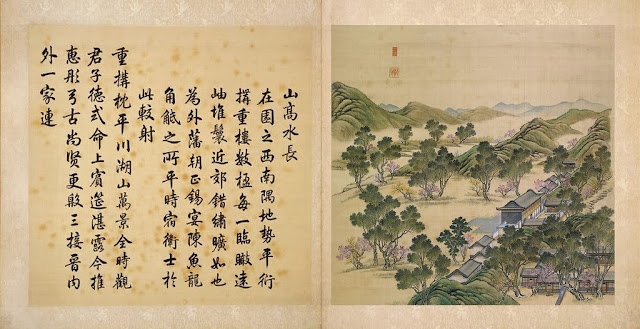 山高水長
在園之西南隅地勢平衍
搆重樓數楹每一臨瞰遠
岫堆鬟近郊錯繡曠如也
為外藩朝正錫宴陳魚龍
角觝之所平時宿衛士於
此較射
重搆枕平川湖山萬景全時觀
君子德式命上賓筵湛露今推
惠彤弓古尚賢更殷三接晉內
外一家連